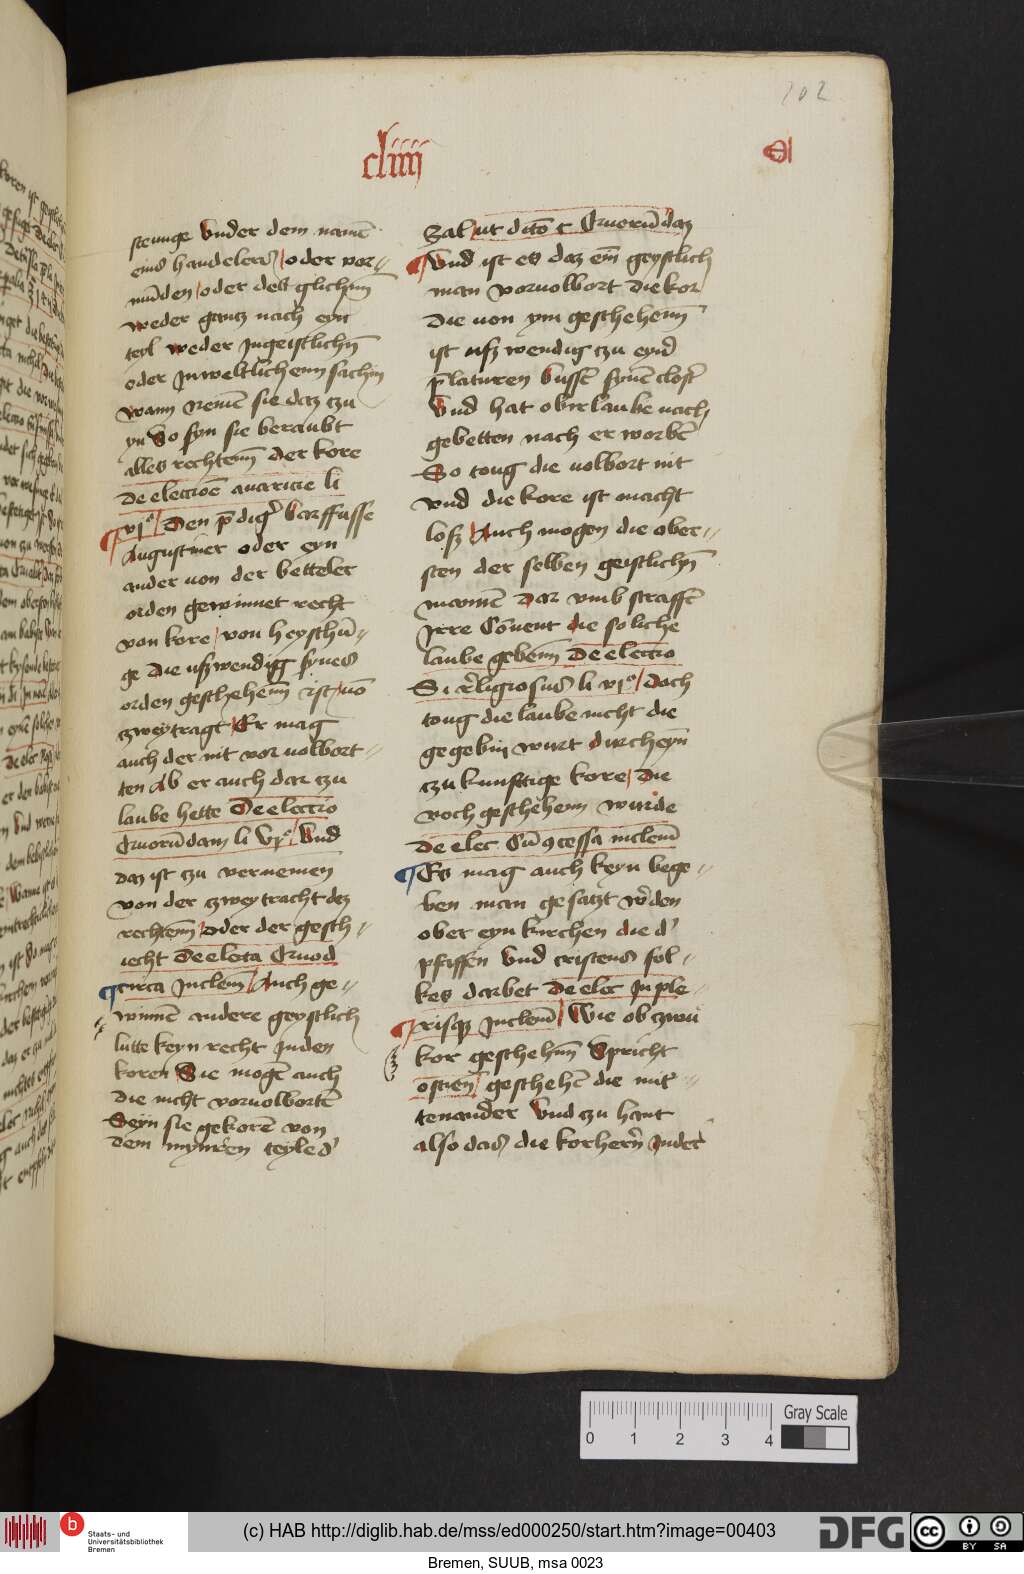 202
cliiij
steunge vnder dem namē
eins handelers / oder vor-
mūden / oder deſt glichenn
weder gantz nach eyn
teyl weder Jngeistlichn̄
oder Jnweltlichenn sachin
wann nemē sie daz tzu
yn So syn sie beraubt
alles rechtenn̄ Der kore
De electiōe auaricie li
vjº / Den p̄digʼ barffusse
Augustiner oder eyn
ander uon der betteler
orden gewinnet recht
von kore / von heyschū-
ge die ußwendigg synes
orden geschehenn̄ ist / uō
tzweytragt / Er mag
auch der nit vor uolbort-
ten Ab er auch dar tzu
laube hette De electio
Quorūdam li vjº / Vnd
daz ist tzu vernemen
von der tzweytracht dez
rechtenn̄ / oder der gesch-
iecht De electa Quod
circa Jnclem / Auch ge-
winnē andere geystlich
lutte keyn recht Jnden
koren Sie mogē auch
die nicht voruolbortē
Seyn sie gekorē von
dem mynrēn teyle dʼ
Zal / ut dicto c Quorūdaz
Vnd ist es daz em̄ geystlich
man voruolbort die kor
die uon ym geschehenn̄
ist ußwendig tzu eynʼ
p̄laturen bussē synē clostʼ
Vnd hat obir laube nach
gebetten nach er worbē
So toug die uolbort nit
vnd die kore ist macht
loß / Auch mogen die ober-
sten der selben geistlichn̄
mannē dar vmb straffē
Jrre Cōuent die soliche
laube gebenn̄ De electio
Si r̄ligiosus li vjº / Doch
toug die laube nicht die
gegebin wurt durcheyn̄
tzu kunfftige kore / Die
noch geschehenn wurde
De elec Cū ꝯcessa inclem̄
Es mag auch keyn bege-
ben man gesatzt wʼden
ober eyn kirchen die dʼ
pfaffen Vnd cristens sol-
kes darbet De elec Jn ple-
risqꝫ Jnclem̄ / Wie ob zwu
kor geschehnn̄ Spricht
ostien̄ / geschehē die mit
tenander Vnd tzu hant
also das / die korhern̄ Jndeʼ
0 1 2 3 4
Gray Scale
b Staats- und
Universitätsbibliothek
Bremen
(c) HAB http://diglib.hab.de/mss/ed000250/start.htm?image=00403
DFG
cc BY SA
Bremen, SUUB, msa 0023